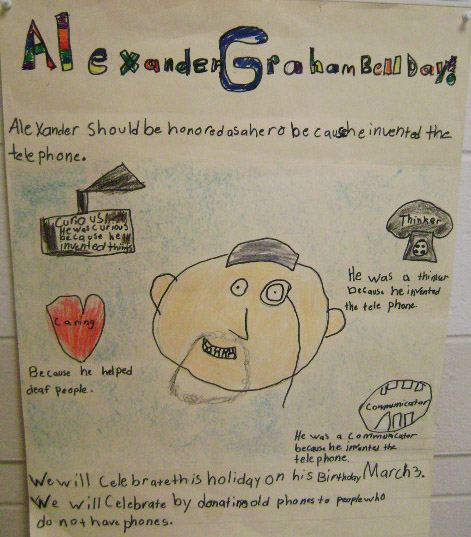 Alexander Graham Bell Day!
Alexander should be honored as a hero because he invented the
telephone.
Curious
He was curious
because he
invented things
Thinker
He was a thinker
because he invented
the tele phone.
Caring
Because he helped
deaf people.
Communicator
He was a communicator
because he invented the
telephone.
We will celebrate this holiday on his Birthday March 3.
We will celebrate by donating old phones to people who
do not have phones.